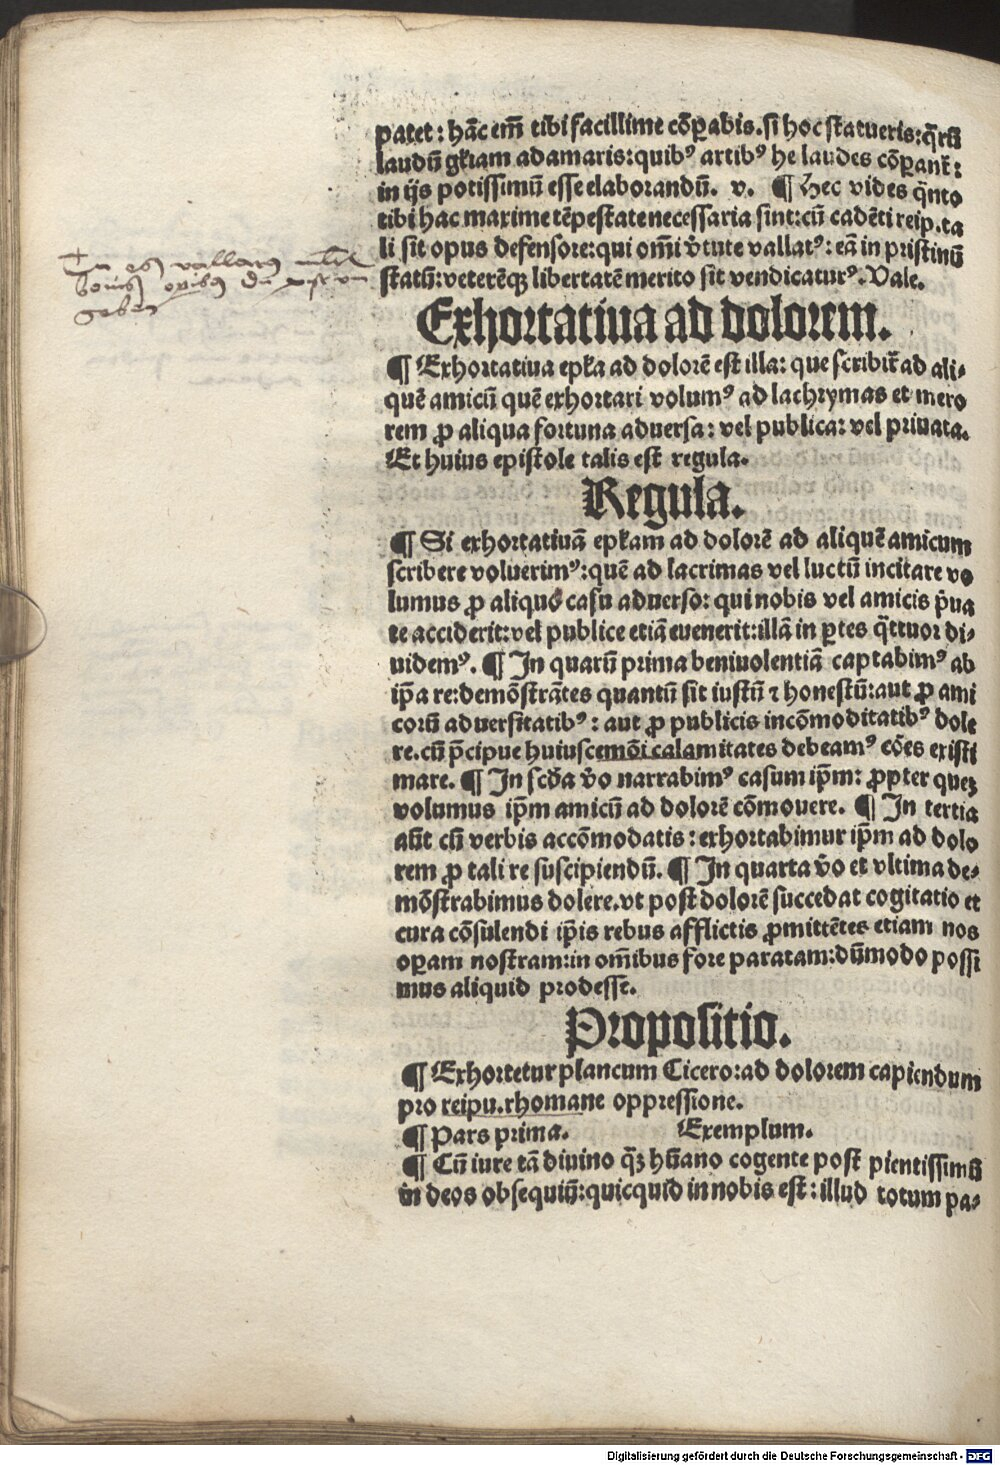 patet: hãc em̃ tibi facillime cõꝑabis. si hoc statueris: q̃rũ
laudũ gl̃iam adamaris: quibꝰ artibꝰ he laudes cõꝑant᷑:
in ijs potissimũ esse elaborandũ. v. ¶ Hec vides q̃nto
tibi hac maxime tẽpestate necessaria sint: cũ cadẽti reip. ta
li sit opus defensore: qui om̃i v̾tute vallatꝰ: eã in pristinũ
statũ: veterẽqꝫ libertatẽ merito sit vendicaturꝰ. Vale.
Tu es vallatus
bonis opibus Du
geben
Exhortatiua ad dolorem.
¶ Exhortatiua epl̃a ad dolorẽ est illa: que scribit᷑ ad ali-
quẽ amicũ quẽ exhortari volumꝰ ad lachrymas et mero
rem ꝓ aliqua fortuna aduersa: vel publica: vel priuata.
Et huius epistole talis est regula.
Regula.
¶ Si exhortatiuã epl̃am ad dolorẽ ad aliquẽ amicum
scribere voluerimꝰ: quẽ ad lacrimas vel luctũ incitare vo
lumus ꝓ aliquo casu aduerso: qui nobis vel amicis p̃ua
te acciderit: vel publice etiã euenerit: illã in ꝑtes q̃ttuor di-
uidemꝰ. ¶ In quarũ prima beniuolentiã captabimꝰ ab
ip̃a re: demõstrãtes quantũ sit iustũ ⁊ honestũ: aut ꝓ ami
corũ aduersitatibꝰ: aut ꝓ publicis incõmoditatibꝰ dole
re. cũ p̃cipue huiuscemõi calamitates debeamꝰ eões existi
mare. ¶ In scd̃a v̾o narrabimꝰ casum ip̃m: ꝓpter queꝫ
volumus ip̃m amicũ ad dolorẽ cõmouere. ¶ In tertia
aũt cũ verbis accõmodatis: exhortabimur ip̃m ad dolo
rem ꝓ tali re suscipiendũ. ¶ In quarta v̾o et vltima de-
mõstrabimus dolere. vt post dolorẽ succedat cogitatio et
cura cõsulendi ip̃is rebus afflictis ꝓmittẽtes etiam nos
oꝑam nostram: in om̃ibus fore paratam: dũmodo possi
mus aliquid prodesse.
Propositio.
¶ Exhortetur plancum Cicero: ad dolorem capiendum
pro reipu. rhomane oppressione.
¶ Pars prima. Exemplum.
¶ Cũ iure tã diuino q̃ꝫ hũano cogente post pientissimũ
in deos obsequiũ: quicquid in nobis est: illud totum pa-
Digitalisierung gefördert durch die Deutsche Forschungsgemeinschaft - DFG